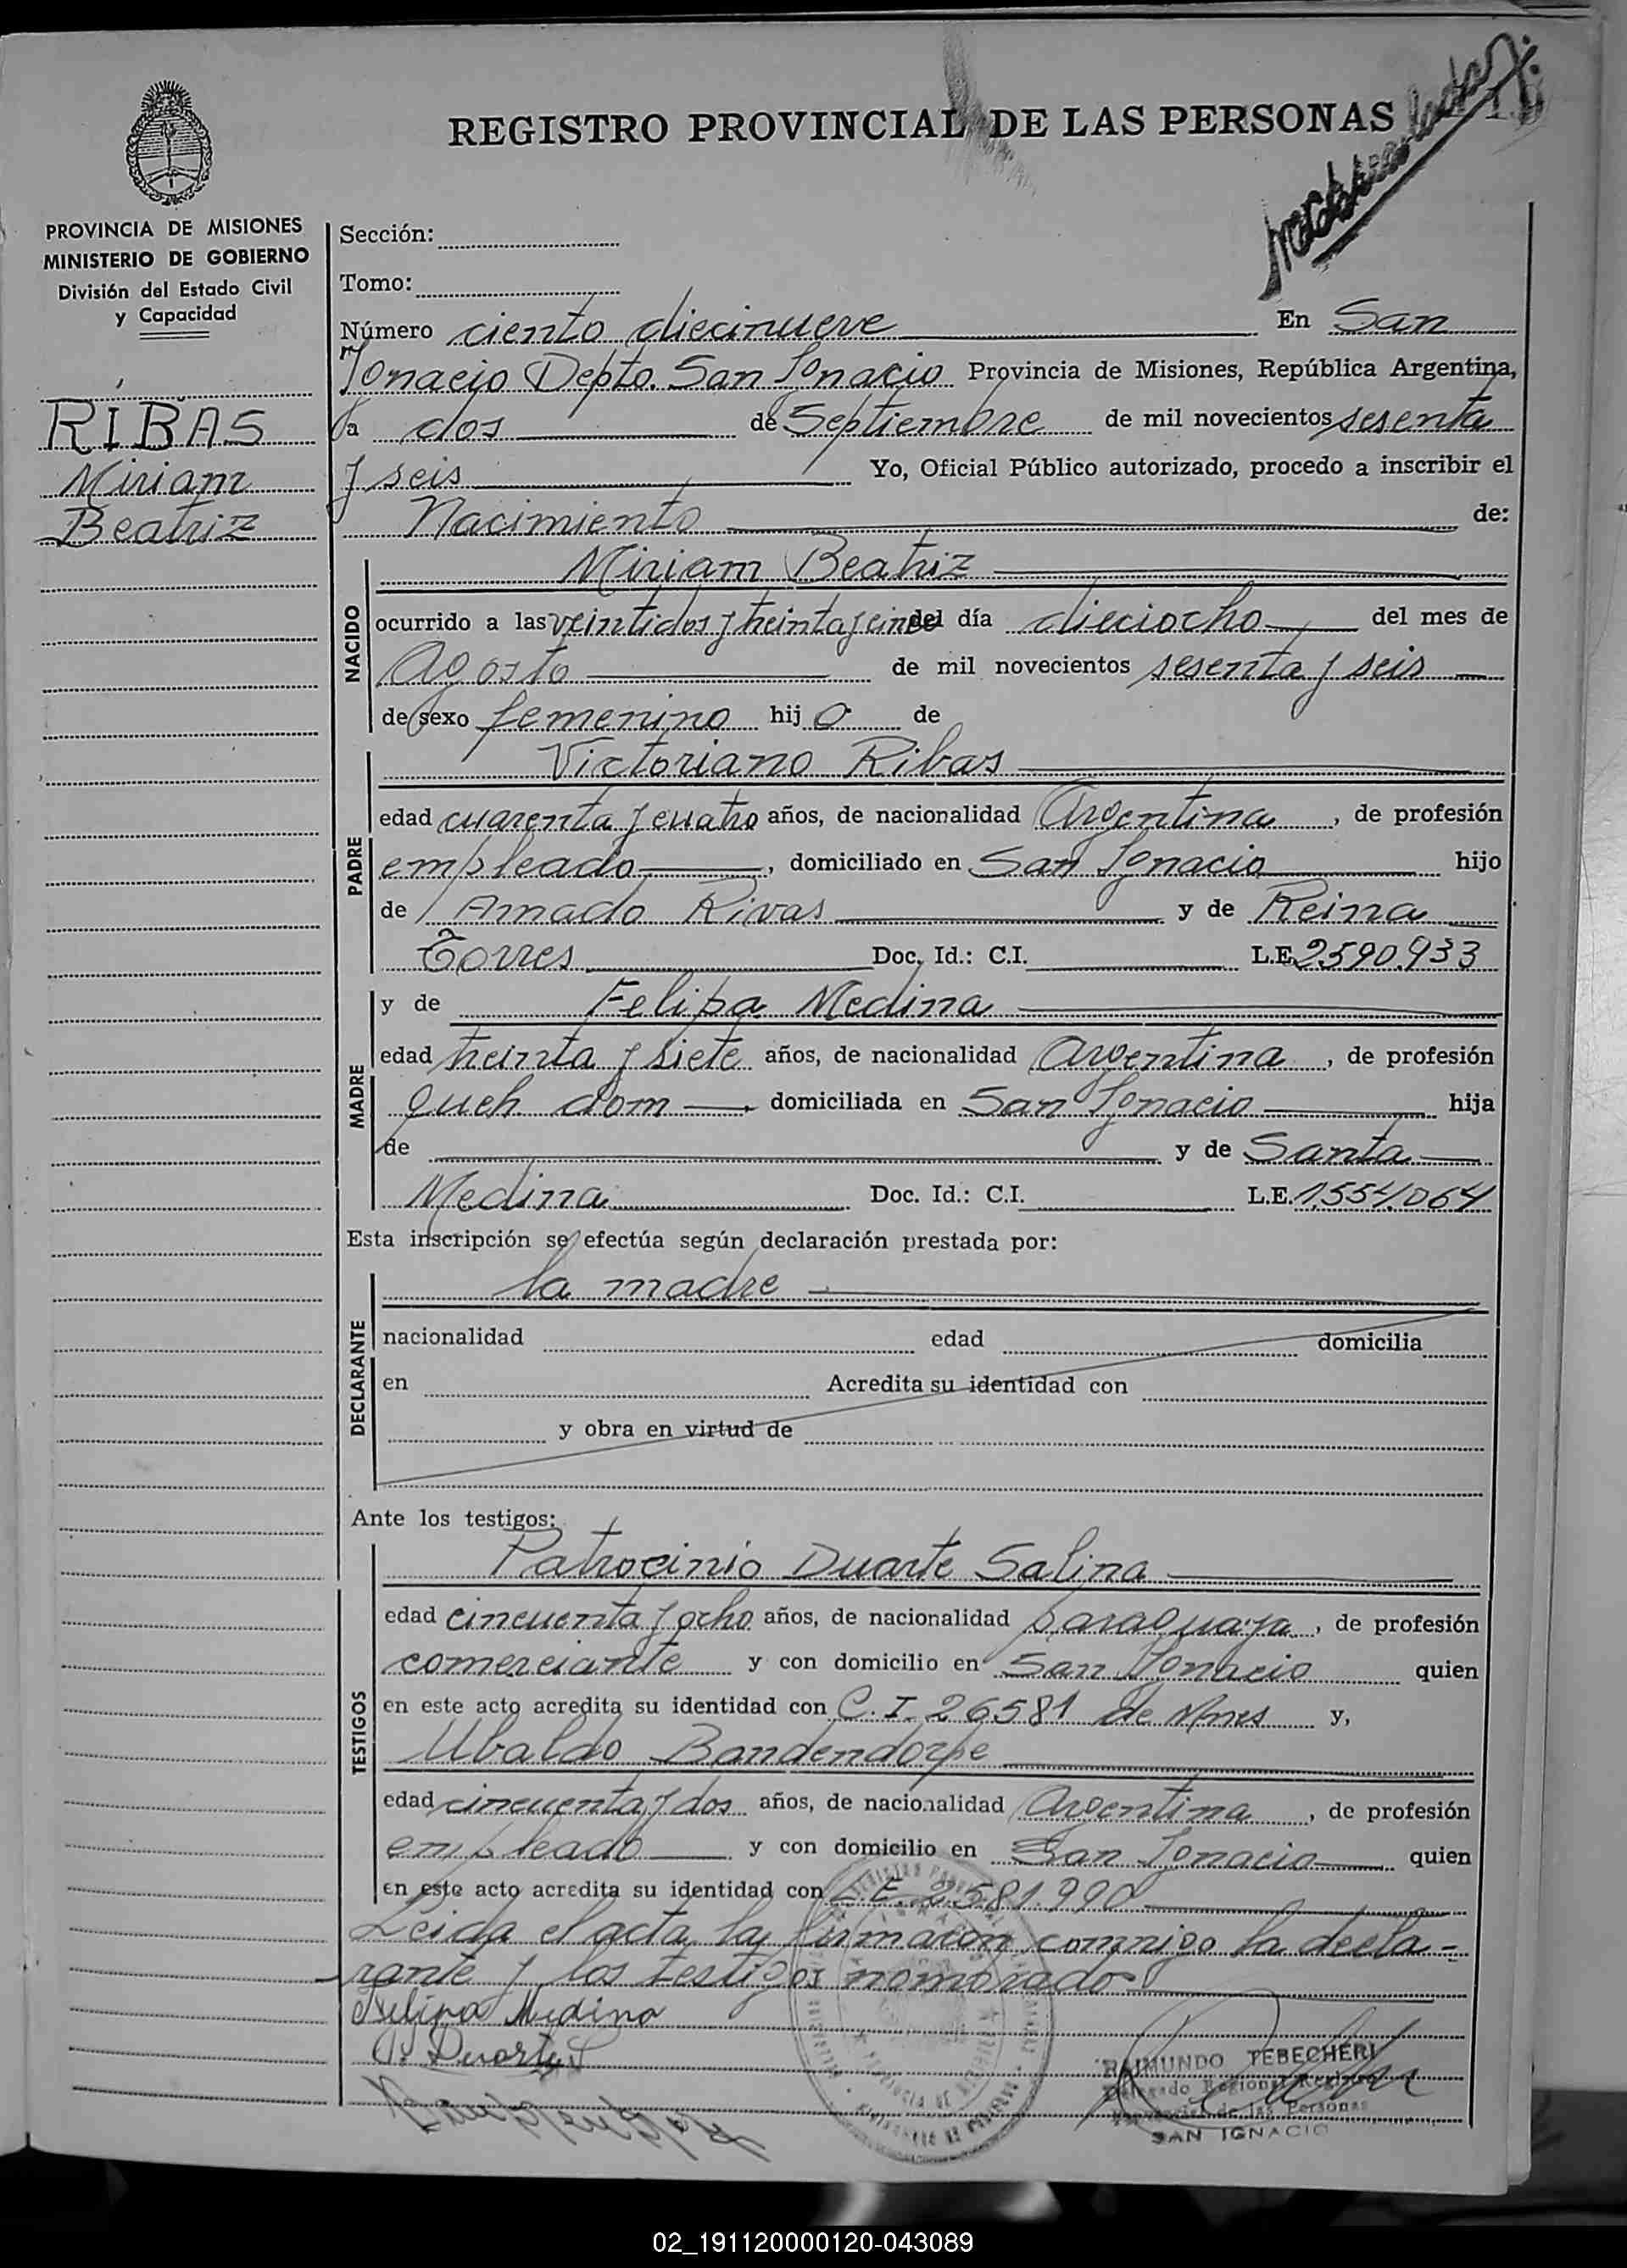 REGISTRO PROVINCIAL DE LAS PERSONAS
PROVINCIA DE MISIONES
MINISTERIO DE GOBIERNO
División del Estado Civil
y Capacidad
RIBAS
Miriam
Beatriz
Sección:
Tomo:
Número ciento diecinueve En San
Ignacio Depto. San Ignacio Provincia de Misiones, República Argentina,
a dos de Septiembre de mil novecientos sesenta
y seis Yo, Oficial Público autorizado, procedo a inscribir el
Nacimiento de:
NACIDO
Miriam Beatriz
ocurrido a las veintidos y treinta y cinco del día dieciocho del mes de
Agosto de mil novecientos sesenta y seis
de sexo femenino hij a de
PADRE
Victoriano Ribas
edad cuarenta y cuatro años, de nacionalidad Argentina, de profesión
empleado, domiciliado en San Ignacio hijo
de Amado Rivas y de Reina
Torres Doc. Id.: C.I. L.E. 2590.933
MADRE
y de Felipa Medina
edad treinta y siete años, de nacionalidad Argentina, de profesión
Queh dom, domiciliada en San Ignacio hija
de y de Santa
Medina Doc. Id.: C.I. L.E. 1.554.064
Esta inscripción se efectúa según declaración prestada por:
DECLARANTE
la madre
nacionalidad edad domicilia
en Acredita su identidad con
y obra en virtud de
Ante los testigos:
TESTIGOS
Patrocinio Duarte Salina
edad cincuenta y ocho años, de nacionalidad paraguaya, de profesión
comerciante y con domicilio en San Ignacio quien
en este acto acredita su identidad con C.I. 26581 de Mnes y,
Ubaldo Bandendorpe
edad cincuenta y dos años, de nacionalidad Argentina, de profesión
empleado y con domicilio en San Ignacio quien
en este acto acredita su identidad con L.E. 2.581.990
Leida el acta la firmaron conmigo la decla-
rante y los testigos nombrados
Felipa Medina
P. Duarte S
RAIMUNDO TEBECHERI
Delegado Regional Registro
Provincial de las Personas
SAN IGNACIO
02_191120000120-043089